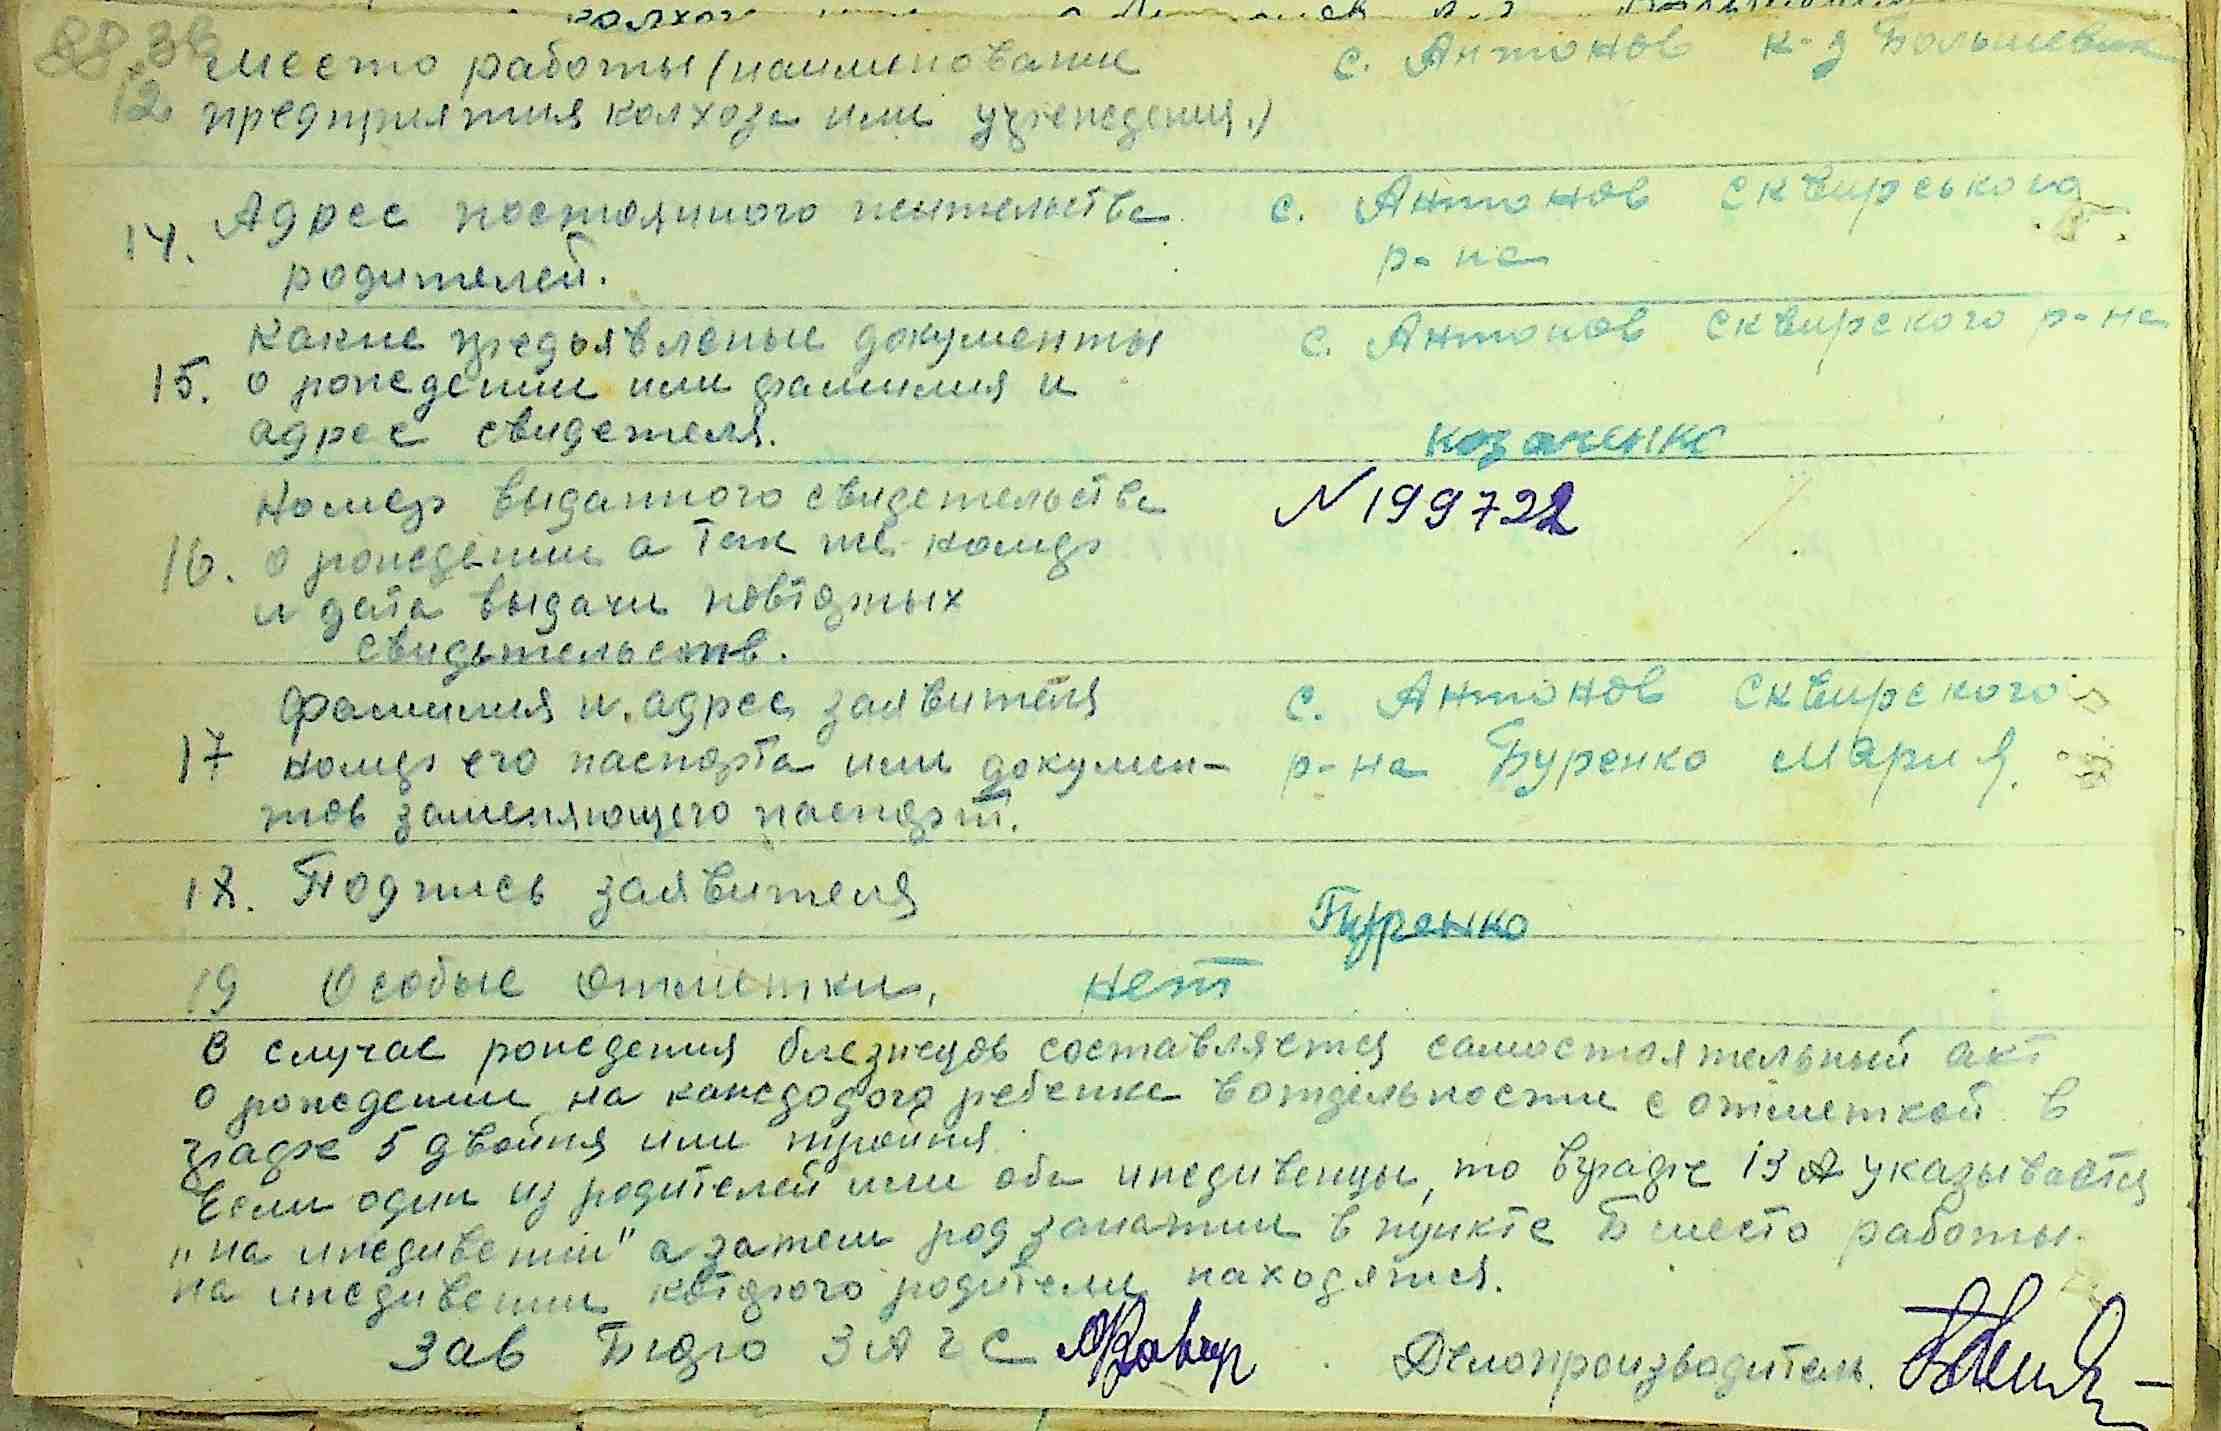 88 38
Место работы (наименование
с. Антонов к-з Большевик
12. предприятия колхоза или учреждения.)
14. Адрес постоянного жительства
родителей.
с. Антонов Сквирського
р-на
15. Какие предъявленые документы
о рождении или фамилия и
адрес свидетеля.
с. Антонов Сквирского р-на
козаченко
16. Номер выданного свидетельства
о рождении а так же номер
и дата выдачи повторных
свидетельств.
N 199722
17 Фамилия и адрес заявителя
номер его паспорта или докумен-
тов заменяющего паспорт.
с. Антонов Сквирского
р-на Буренко Мария.
18. Подпись заявителя
Буренко
19 Особые отметки. нет
В случае рождения близнецов составляется самостоятельный акт
о рождении на каждодого ребенка в отдельности с отметкой в
графе 5 двойня или тройня.
Если один из родителей или оба иждивенцы, то в графе 13 А указывается
"на иждивении" а затем род занятии в пункте Б место работы.
на иждивении которого родители находятся.
Зав Бюро ЗАГС
Делопроизводитель.